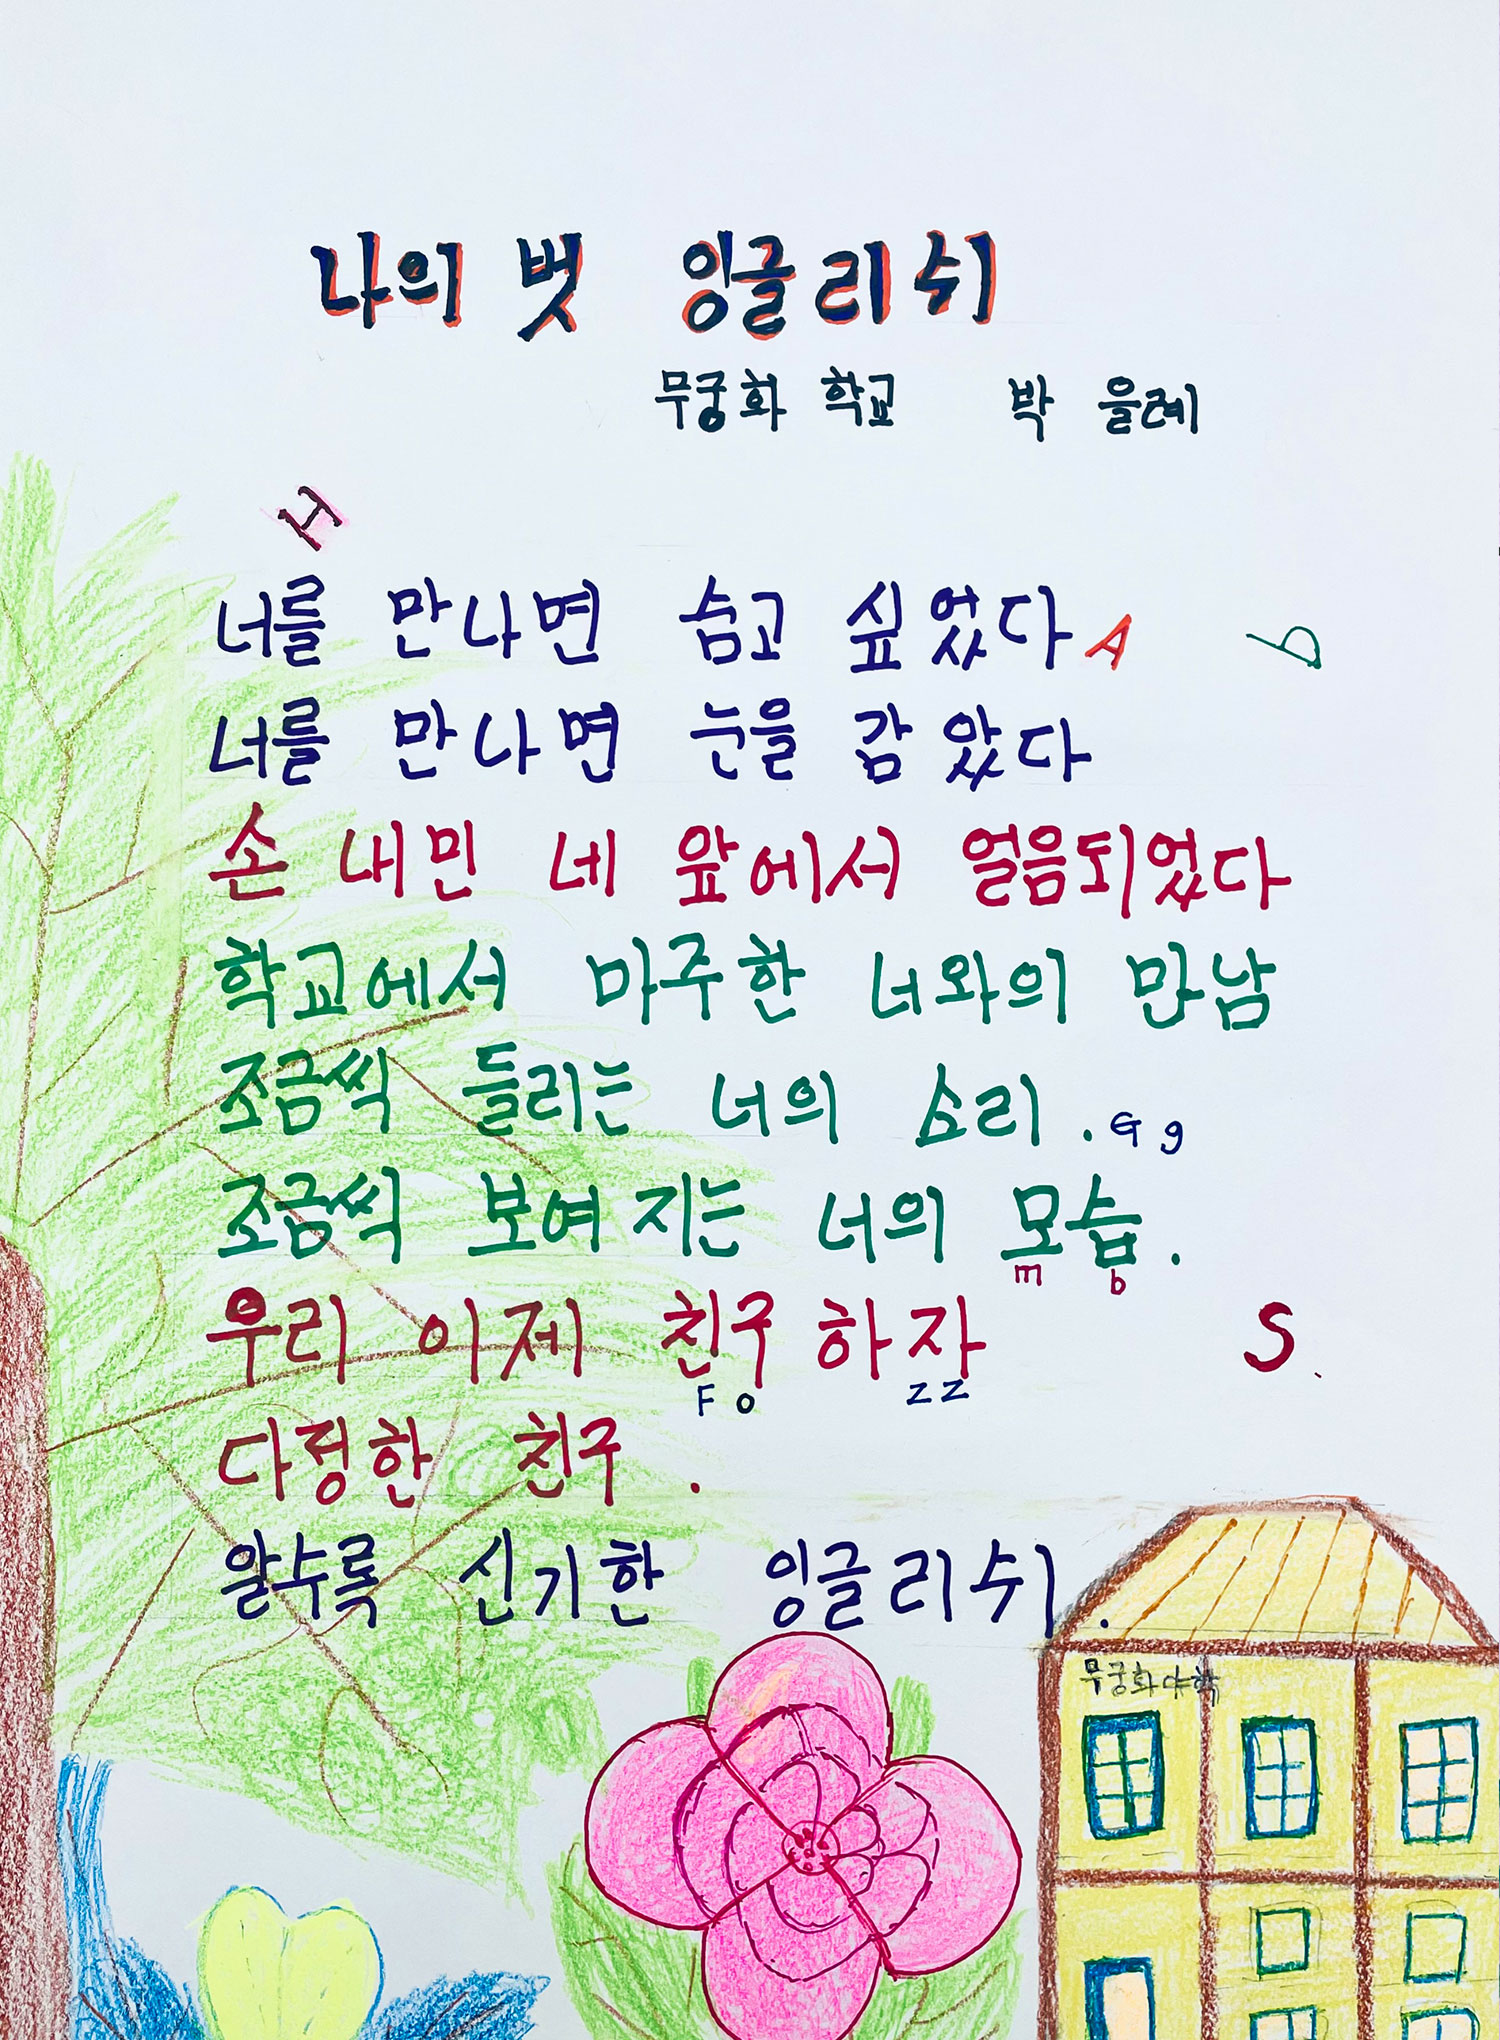 나의 벗 잉글리쉬
무궁화 학교 박 을례
H
너를 만나면 숨고 싶었다 A b
너를 만나면 눈을 감았다
손 내민 네 앞에서 얼음되었다
학교에서 마주한 너와의 만남
조금씩 들리는 너의 소리 . G g
조금씩 보여지는 너의 모습 .
m b
우리 이제 친구하자 S .
F o z z
다정한 친구 .
알수록 신기한 잉글리쉬 .
무궁화야학